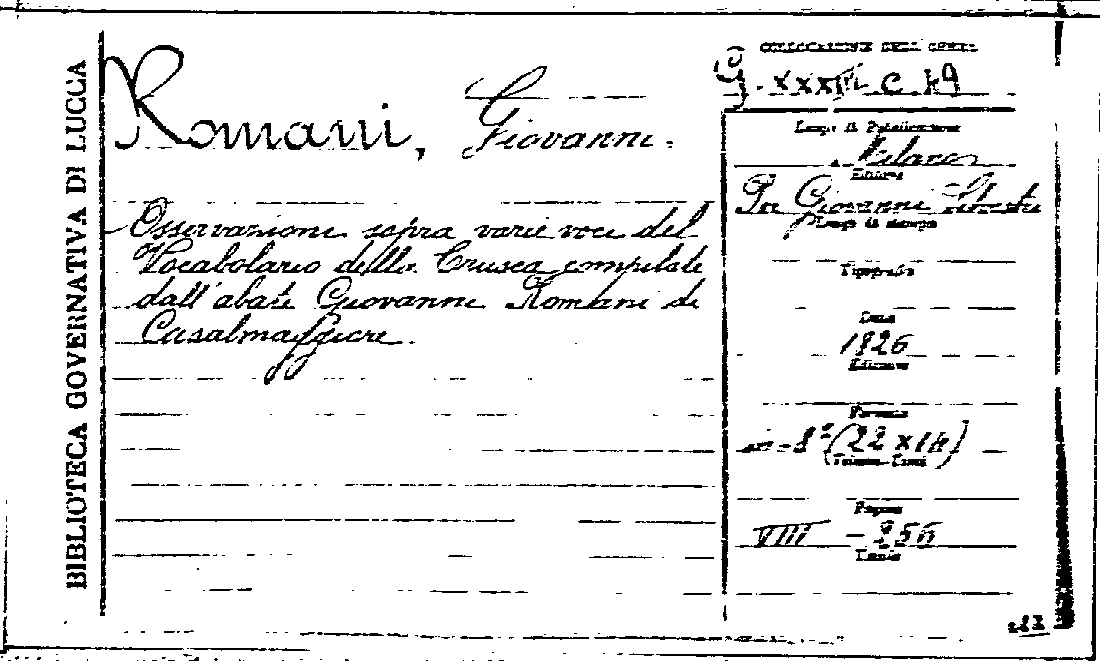 BIBLIOTECA GOVERNATIVA DI LUCCA
Romani, Giovanni.
Osservazioni sopra varie voci del
Vocabolario della Crusca compilate
dall'abate Giovanni Romani di
Casalmaggiore.
COLLOCAZIONE DELL'OPERA
G. XXXIII. c. 49
Luogo di Pubblicazione
Milano
Editore
Per Giovanni Silvestri
Luogo di stampa
Tipografia
Data
1826
Edizione
Formato
in-8° (22 x 14)
Pagine
VIII - 256